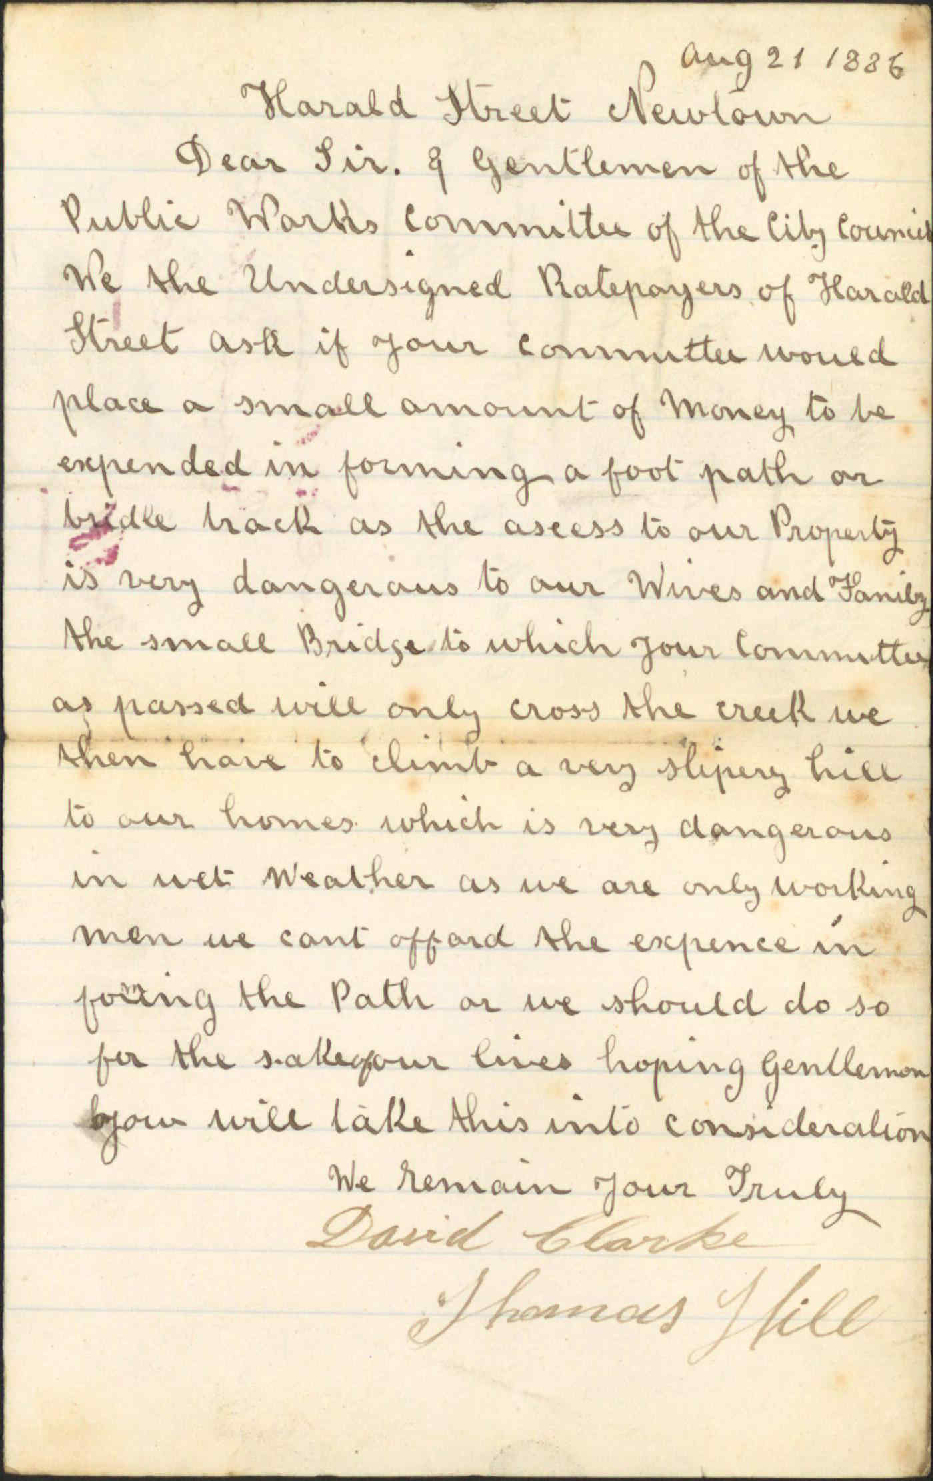 Aug 21 1886
Harald Street Newtown
Dear Sir. & Gentlemen of the
Public Works Committee of the City Council
We the Undersigned Ratepayers of Harald
Street ask if your Committee would
place a small amount of Money to be
expended in forming a foot path or
bridle track as the ascess to our Property
is very dangerous to our Wives and Family
the small Bridge to which your Committee
as passed will only cross the creek we
then have to climb a very slipery hill
to our homes which is very dangerous
in wet Weather as we are only working
men we cant afford the expence in
the Path or we should do so
for the sake of our lives hoping Gentlemen
you will take this into consideration
We Remain your Truly
David Clarke
Thomas Hill